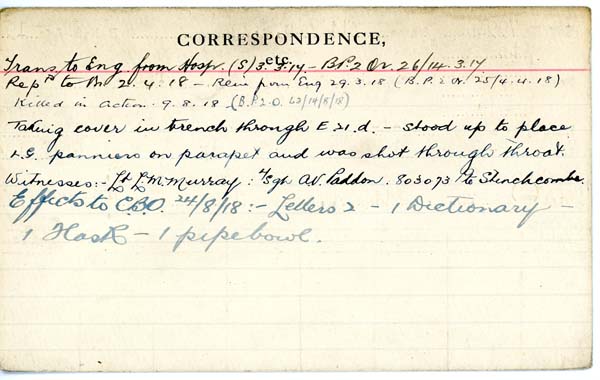 CORRESPONDENCE, etc.
Trans. to Eng. from Hosp. (S) 3.3.17 – B.P.2 Or. 26/14.3.17
Rep'd to Bn 2.4.18 – Rein from Eng 29.3.18 (B.P. 2 Or. 25/4.4.18)
Killed in action. 9.8.18 (B.P.2.O. 63/19/8/18)
Taking cover in trench through E 21.d. – stood up to place
L.G. panniers on parapet and was shot through throat.
Witnesses:– Lt. L.M. Murray : Sgt A.V. Paddon. 803073 Pte Stinchcombe.
Effects to C.B.O. 24/8/18:– Letters 2 – 1 Dictionary –
1 Flask – 1 pipe bowl.